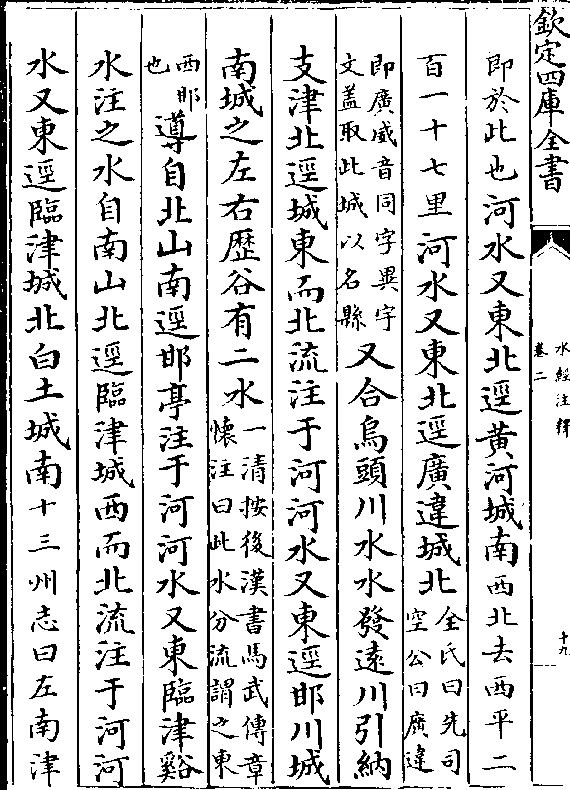 欽定四庫全書
水經注釋
卷二
十九
即於此也河水又東北逕黄河城南西北去西平二
百一十七里河水又東北逕廣違城北全氏曰先司空公曰廣違
即廣威音同字異字文盖取此城以名縣又合烏頭川水水發遠川引納
支津北逕城東而北流注于河河水又東逕邯川城
南城之左右歴谷有二水一清按後漢書馬武傳章懐注曰此水分流謂之東
西邯也導自北山南逕邯亭注于河河水又東臨津谿
水注之水自南山北逕臨津城西而北流注于河河
水又東逕臨津城北白土城南十三州志曰左南津